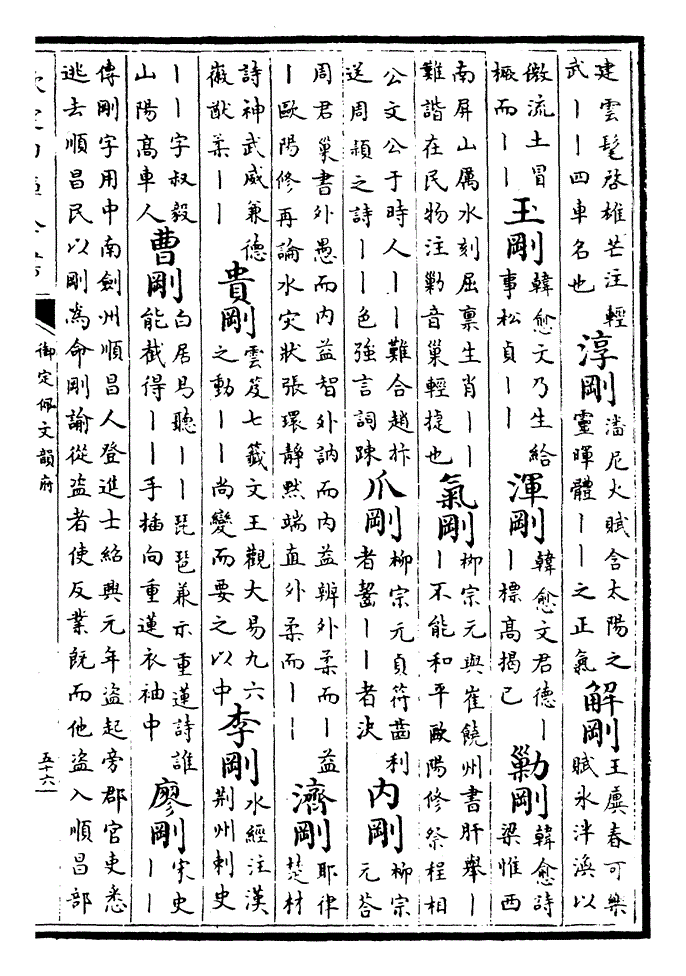 建雲髦啓雄芒注輕
武丨丨四車名也
淳剛
潘尼火賦含太陽之
靈暉體丨丨之正氣
解剛
王廙春可樂
賦氷泮渙以
微流土冒
橛而丨丨
玉剛
韓愈文乃生給
事松貞丨丨
渾剛
韓愈文君德丨
丨標高揭已
勦剛
韓愈詩
梁惟西
南屏山厲水刻屈禀生肖丨丨
難諧在民物注勦音巢輕捷也
氣剛
柳宗元與崔饒州書肝舉丨
丨不能和平歐陽修祭程相
公文公于時人丨丨難合趙抃
送周颎之詩丨丨色強言詞疎
爪剛
柳宗元貞符齒利
者齧丨丨者決
内剛
柳宗
元荅
周君巢書外愚而内益智外訥而内益辨外柔而丨益
丨歐陽修再論水灾狀張環靜黙端直外柔而丨丨
濟剛
耶律
楚材
詩神武威兼德
嶶猷柔丨丨
貴剛
雲笈七籤文王觀大易九六
之動丨丨尚變而要之以中
李剛
水經注漢
荆州刺史
丨丨字叔毅
山陽高車人
曹剛
白居易聽丨丨琵琶兼示重蓮詩誰
能截得丨丨手插向重蓮衣袖中
廖剛
宋史
丨丨
傳剛字用中南劍州順昌人登進士紹興元年盜起旁郡官吏悉
逃去順昌民以剛爲命剛諭從盜者使反業既而他盜入順昌部
御定佩文韻府
五十六